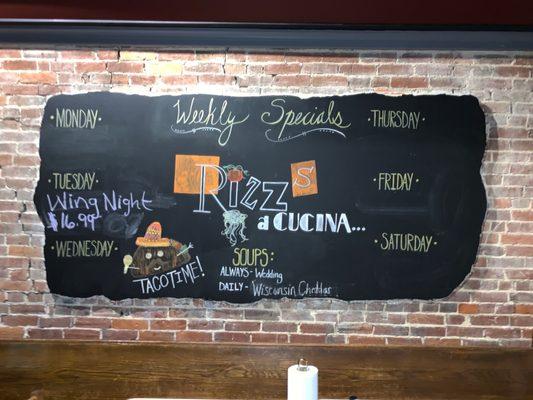 Weekly Specials
•MONDAY•
•TUESDAY•
Wing Night
$16.99
•WEDNESDAY•
TACOTIME!
RIZZS
a CUCINA...
SOUPS:
ALWAYS- Wedding
DAILY- Wisconsin Cheddar
•THURSDAY•
•FRIDAY•
•SATURDAY•